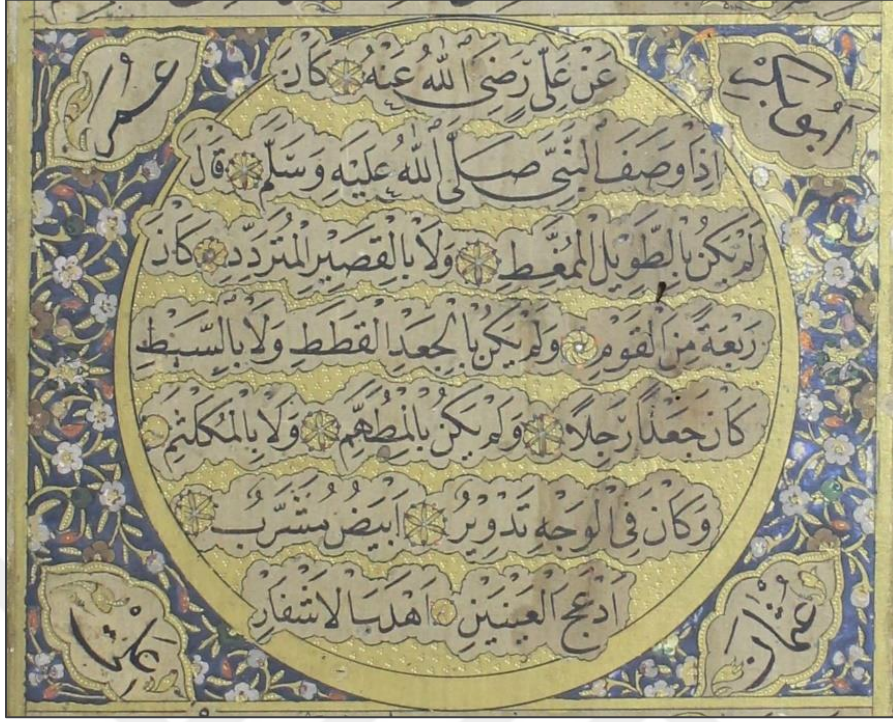 ابوبكر
عمر
عَنْ عَلِيٍّ رَضِيَ اللهُ عَنْهُ كَانَ
اِذَا وَصَفَ النَّبِيَّ صَلَّى اللهُ عَلَيْهِ وَسَلَّمَ قَالَ
لَمْ يَكُنْ بِالطَّوِيلِ الْمُمَّغِطِ وَلَا بِالْقَصِيرِ الْمُتَرَدِّدِ كَانَ
رَبْعَةً مِنَ الْقَوْمِ وَلَمْ يَكُنْ بِالْجَعْدِ الْقَطَطِ وَلَا بِالسَّبِطِ
كَانَ جَعْدًا رَجِلًا وَلَمْ يَكُنْ بِالْمُطَهَّمِ وَلَا بِالْمُكَلْثَمِ
وَكَانَ فِي الْوَجْهِ تَدْوِيرٌ اَبْيَضُ مُشَرَّبٌ
اَدْعَجُ الْعَيْنَيْنِ اَهْدَبُ الْاَشْفَارِ
عثمان
علي